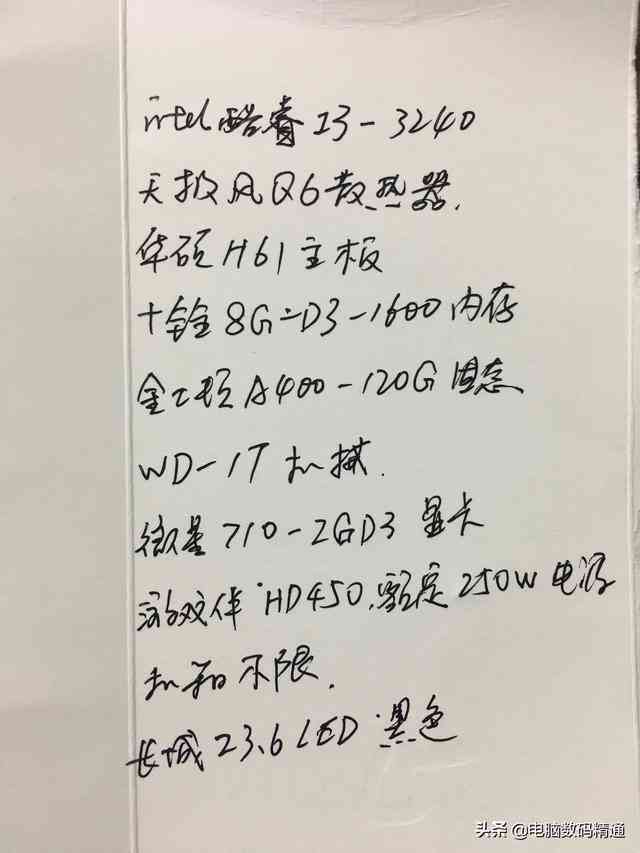 intel酷睿I3-3240
天极风Q6散热器.
华硕H61主板
十铨8G-D3-1600内存
金士顿A400-120G固态
WD-1T机械.
微星710-2GD3显卡
游戏伴HD450,额定250W电源
机箱不限.
长城23.6LED黑色
头条@电脑数码精通